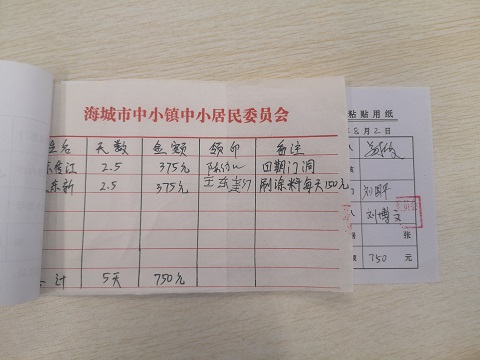 海城市中小镇中小居民委员会
名 天数 金额 领印 备注
江 2.5 375元 回期门洞
东新 2.5 375元 刷涂料每天150元
计 5天 750元
粘贴用纸
8月2日
人
刘国平
人 刘博文
张
750 元